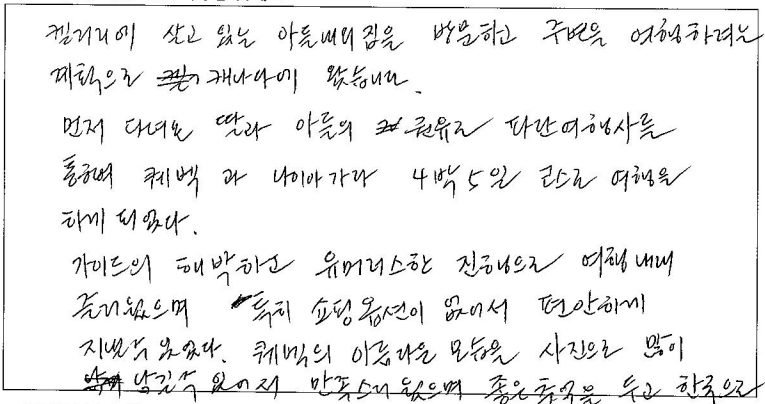 캘거리에 살고 있는 아들내외 집을 방문하고 주변을 여행하려는
계획으로 캐나다에 왔습니다.
먼저 다녀온 딸과 아들의 권유로 파란여행사를
통하여 퀘벡 과 나이아가라 4박 5일 코스로 여행을
하게 되었다.
가이드의 해박하고 유머러스한 진행으로 여행내내
즐거웠으며 특히 쇼핑옵션이 없어서 편안하게
지낼수 있었다. 퀘벡의 아름다운 모습을 사진으로 많이
남길수 있어서 만족스러웠으며 좋은추억을 두고 한국으로